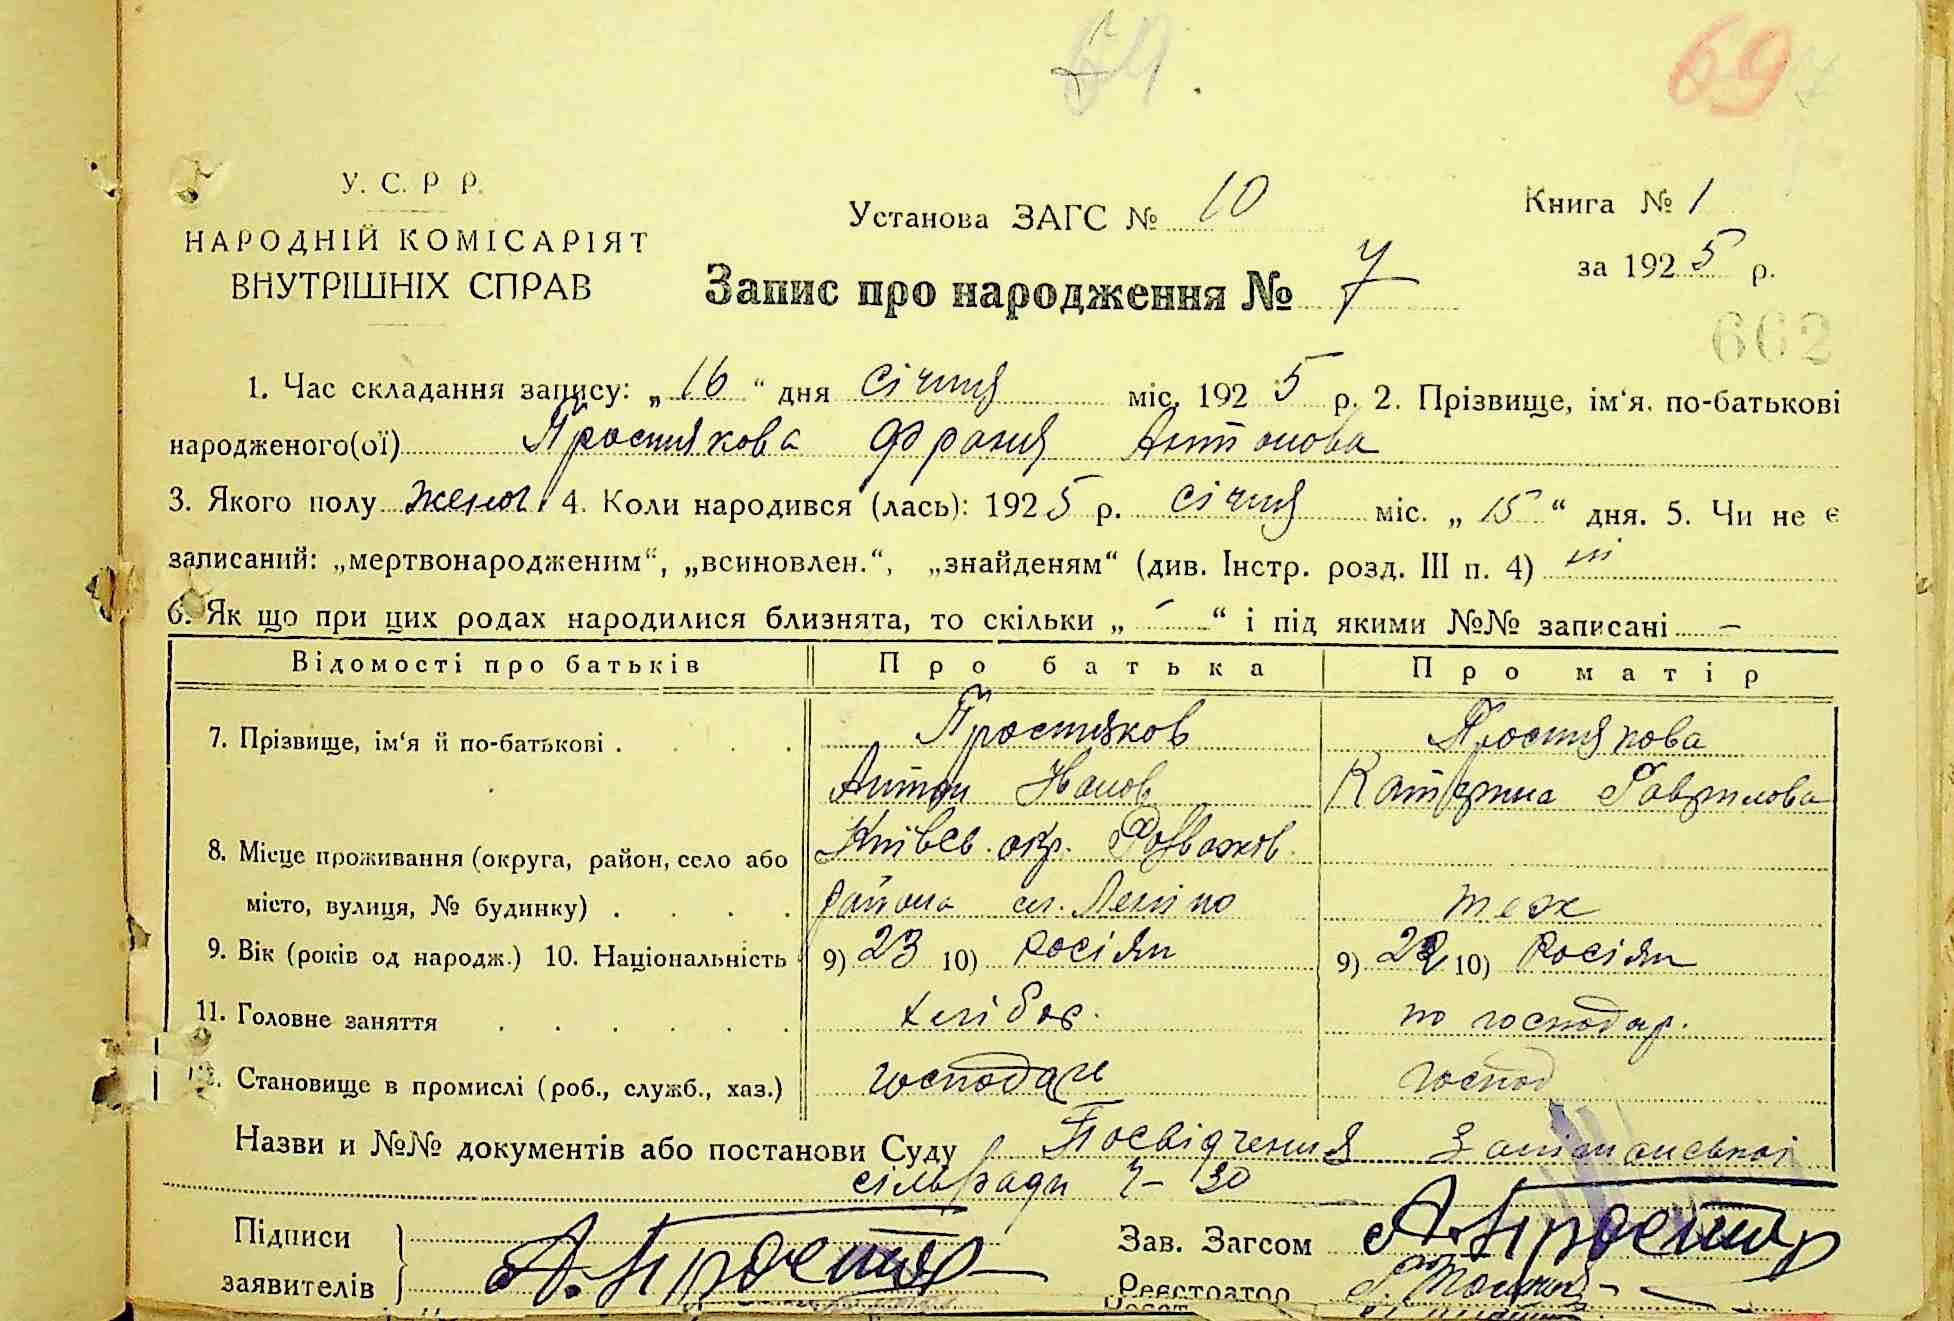 69
У. С. Р Р.
НАРОДНІЙ КОМІСАРІЯТ
ВНУТРІШНІХ СПРАВ
Установа ЗАГС № 10
Книга № 1
за 1925 р.
Запис про народження № 7
662
1. Час складання запису: „16“ дня січня міс. 1925 р. 2. Прізвище, ім‘я, по-батькові
народженого(ої) Простякова Франя Антонова
3. Якого полу женог. 4. Коли народився (лась): 1925 р. січня міс. „15“ дня. 5. Чи не є
записаний: „мертвонародженим“, „всиновлен.“, „знайденям“ (див. Інстр. розд. III п. 4) ні
6. Як що при цих родах народилися близнята, то скільки „ - “ і під якими №№ записані -
Відомості про батьків Про батька Про матір
7. Прізвище, ім‘я й по-батькові . . . . Простяков Простякова
Антон Иванов Катерина Гаврилова
8. Місце проживання (округа, район, село або Київсв. окр. Розважов.
місто, вулиця, № будинку) . . . . района сл. Леніно теж
9. Вік (років од народж.) 10. Національність 9) 23 10) Росіян 9) 22 10) Росіян
11. Головне заняття . . . . . . хлібор. по господар.
Становище в промислі (роб., служб., хаз.) господар господ
Назви и №№ документів або постанови Суду Посвідчення
сільради ч- 30
Підписи
заявителів
А. Простяк
Зав. Загсом А. Простяк
Реєстратор